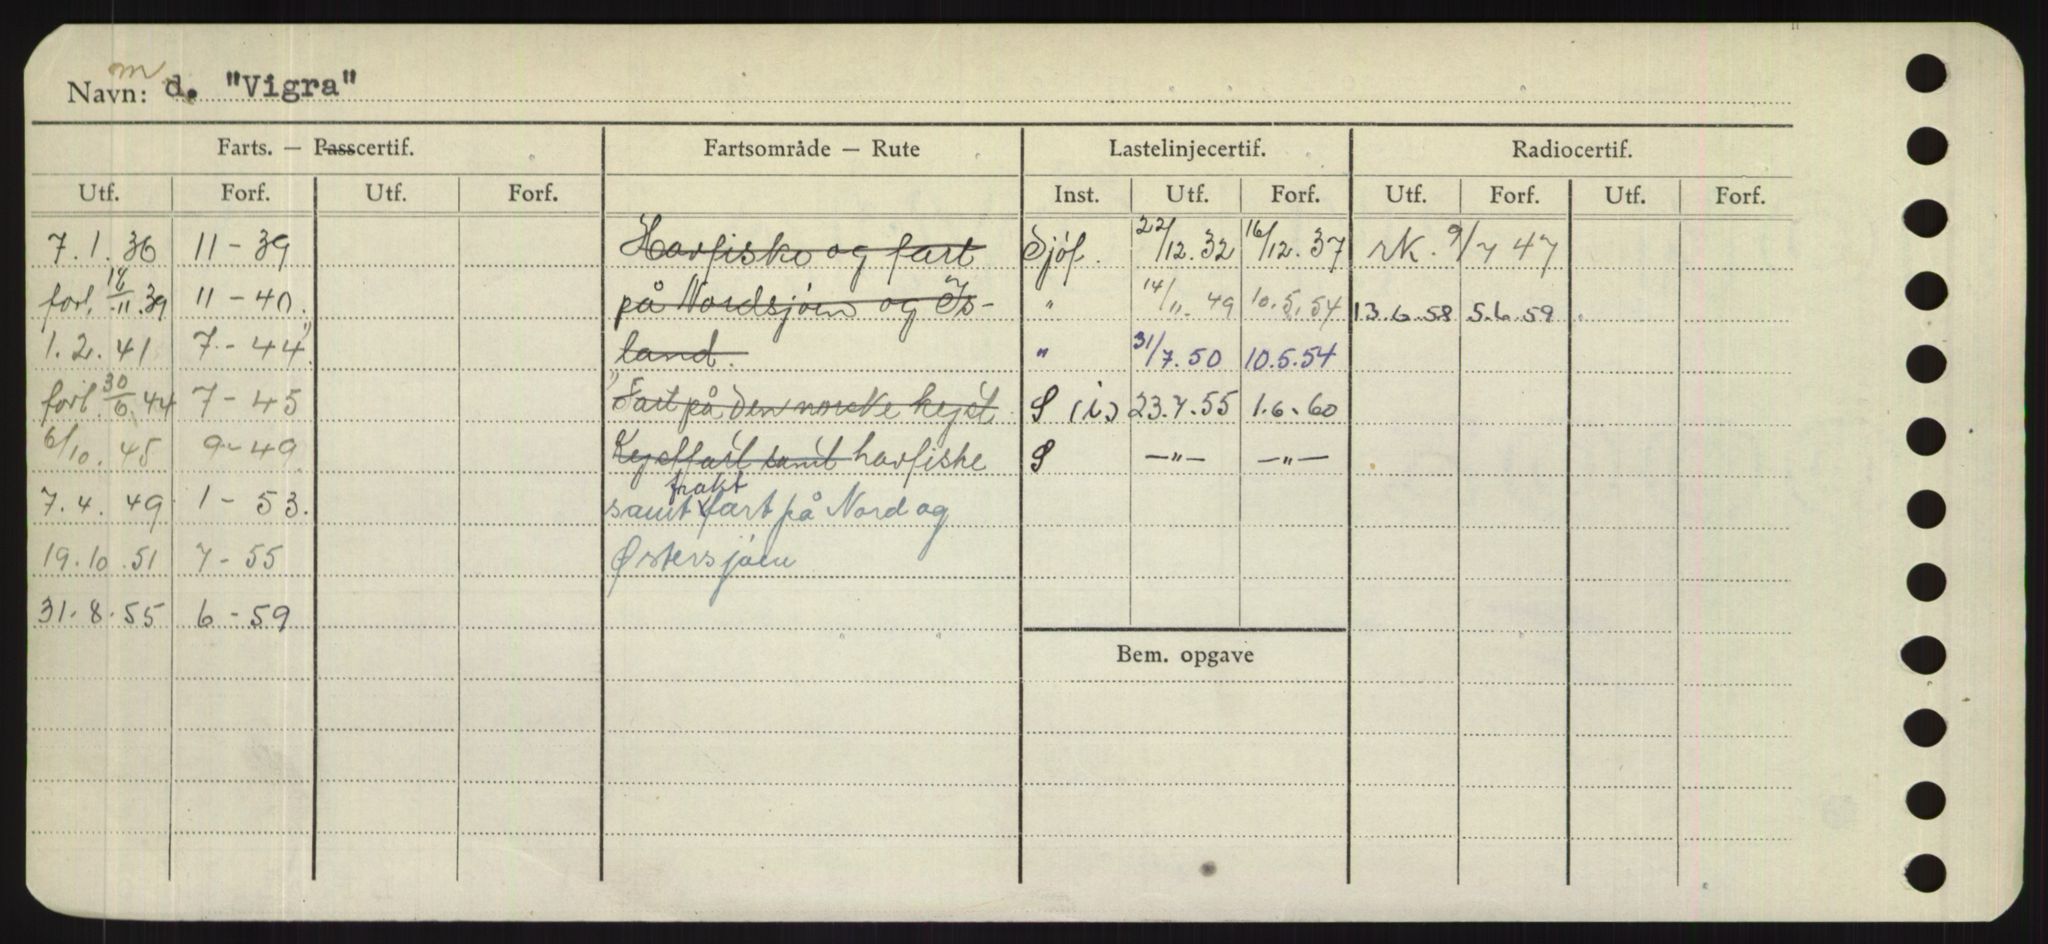 Navn: m d. "Vigra"
Farts. — Passcertif. Fartsområde — Rute Lastelinjecertif. Radiocertif.
Utf. Forf. Utf. Forf. Inst. Utf. Forf. Utf. Forf. Utf. Forf.
7.1.36 11-39 Havfiske og fart Sjöf. 22/12.32 16/12.37 rk. 9/7 47
forl. 18/11.39 11-40. på Nordsjöen og Is- " 14/11.49 10.5.54 13.6.58 5.6.59
1.2.41 7-44 land. " 31/7.50 10.5.54
forl. 30/6.44 7-45 "Fart på den norske kyst S (i) 23.7.55 1.6.60
6/10.45 9-49 Kystfart samt havfiske S —"— —"—
7.4.49 1-53. samt frakt fart på Nord og
19.10.51 7-55 Østersjöen
31.8.55 6-59
Bem. opgave